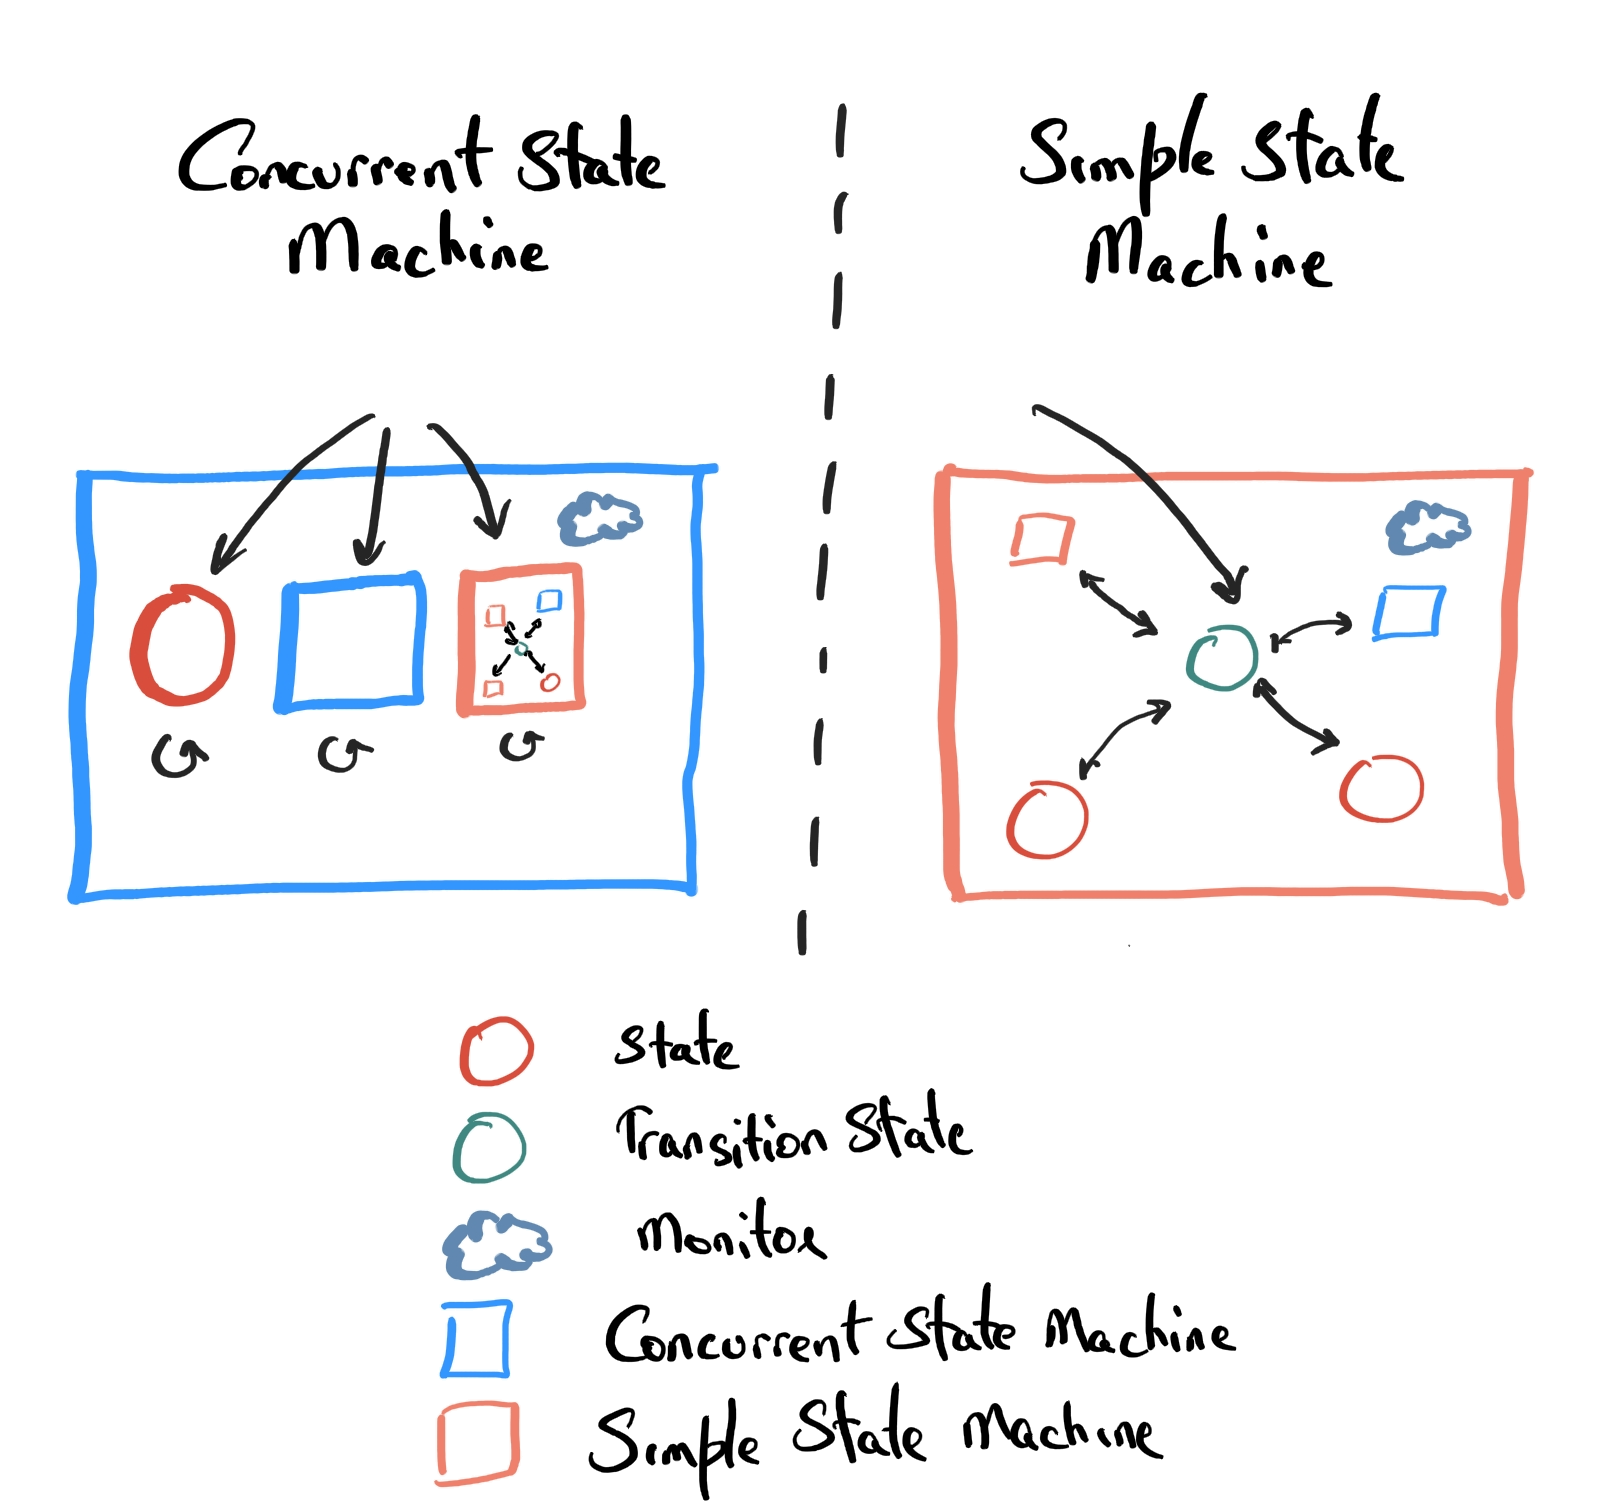 Concurrent State
Machine
Simple State
Machine
State
Transition State
Monitor
Concurrent State Machine
Simple State Machine